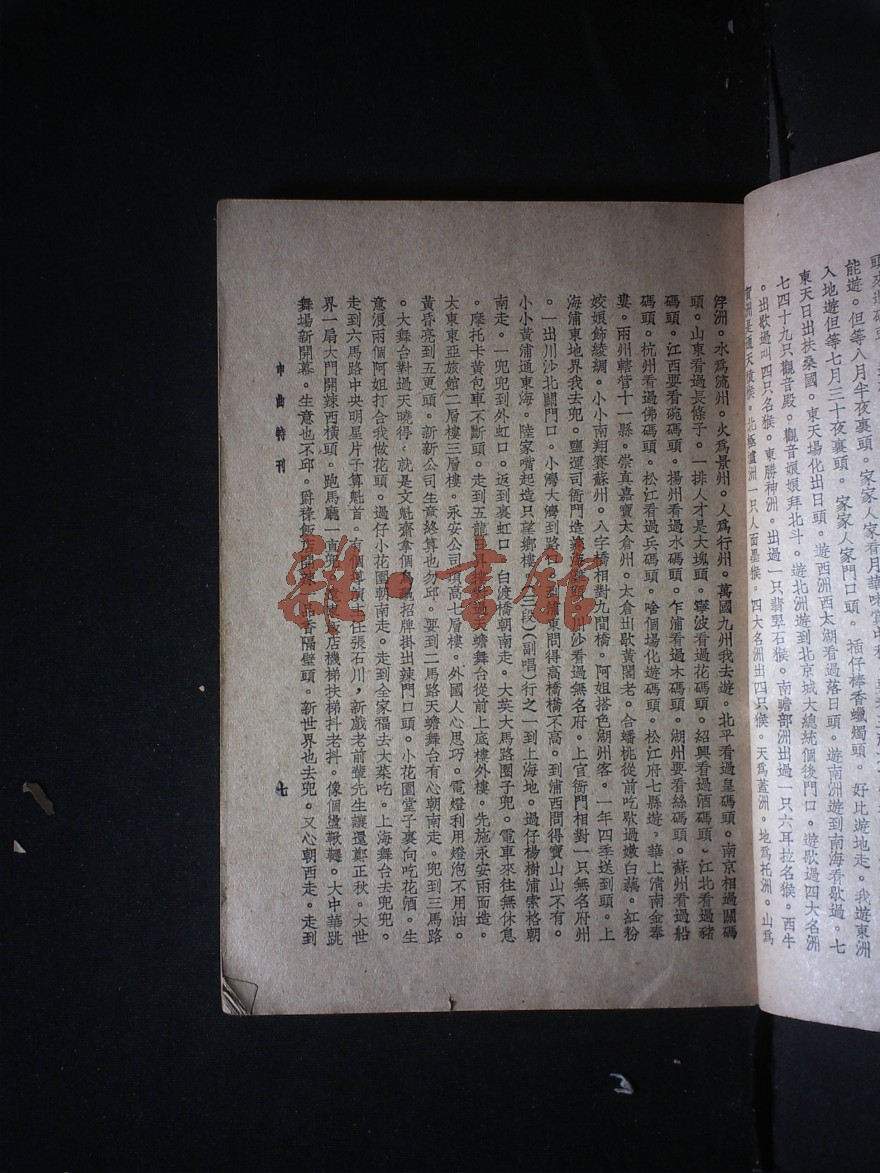 頭來遊碼頭
能遊。但等八月半夜裏頭。家家人家看月華
入地遊但等七月三十夜裏頭。家家人家門口頭。插仔棒香蠟燭頭。好比遊地走。我遊東洲
東天日出扶桑國。東天場化出日頭。遊西洲西太湖看過落日頭。遊南洲遊到南海看歇過。七
七四十九只觀音殿。觀音娘娘拜北斗。遊北洲遊到北京城大總統個後門口。遊歇過四大名洲
。出歇過叫四只名猴。東勝神洲。出過一只翡翠石猴。南贍部洲出過一只六耳拉名猴。西牛
賀洲是通天猿猴。北極蘆洲一只人面墨猴。四大名洲出四只猴。天爲蓋洲。地爲托洲。山爲
浮洲。水爲流州。火爲景州。人爲行州。萬國九州我去遊。北平看過皇碼頭。南京相過關碼
頭。山東看過長條子。一排人才是大塊頭。寧波看過花碼頭。紹興看過酒碼頭。江北看過豬
碼頭。江西要看碗碼頭。揚州看過水碼頭。乍浦看過木碼頭。湖州要看絲碼頭。蘇州看過船
碼頭。杭州看過佛碼頭。松江看過兵碼頭。啥個場化遊碼頭。松江府七縣遊。華上清南金奉
婁。兩州轄營十一縣。崇真嘉寶太倉州。太倉出歇黃閣老。合蟠桃從前吃歇過嫩白藕。紅粉
姣娘飾綾綢。小小南翔賽蘇州。八字橋相對九間橋。阿姐搭色湖州客。一年四季送到頭。上
海浦東地界我去兜。鹽運司衙門造川沙看過無名府。上官衙門相對一只無名府州
。一出川沙北關門口。小灣大灣到路口。到浦東問得高橋橋不高。到浦西問得寶山山不有。
小小黃浦通東海。陸家嘴起造只望鄉樓。(二段)(副唱)行之一到上海地。過仔楊樹浦索格朝
南走。一兜兜到外虹口。返到裏虹口。白渡橋朝南走。大英大馬路圈子兜。電車來往無休息
。摩托卡黃包車不斷頭。走到五龍日昇樓。天蟾舞台從前上底樓外樓。先施永安兩面造。
大東東亞旅館二層樓三層樓。永安公司頂高七層樓。外國人心思巧。電燈利用燈泡不用油。
黃昏亮到五更頭。新新公司生意終算也勿邱。要到二馬路天蟾舞台有心朝南走。兜到三馬路
。大舞台對過天曉得。就是文魁齋拿個烏龜招牌掛出辣門口頭。小花園堂子裏向吃花酒。生
意浪兩個阿姐打合我做花頭。過仔小花園朝南走。走到全家福去大菜吃。上海舞台去兜兜。
走到六馬路中央明星片子算魁首。有個導演主任張石川，新戲老前輩先生讓還鄭正秋。大世
界一扇大門開辣西橫頭。跑馬廳一直兜。飯店機梯扶梯抖老抖。像個盪鞦韆。大中華跳
舞場新開幕。生意也不邱。爵祿飯店開辣一品香隔壁頭。新世界也去兜。又心朝西走。走到
申曲特刊
七
雜·書館